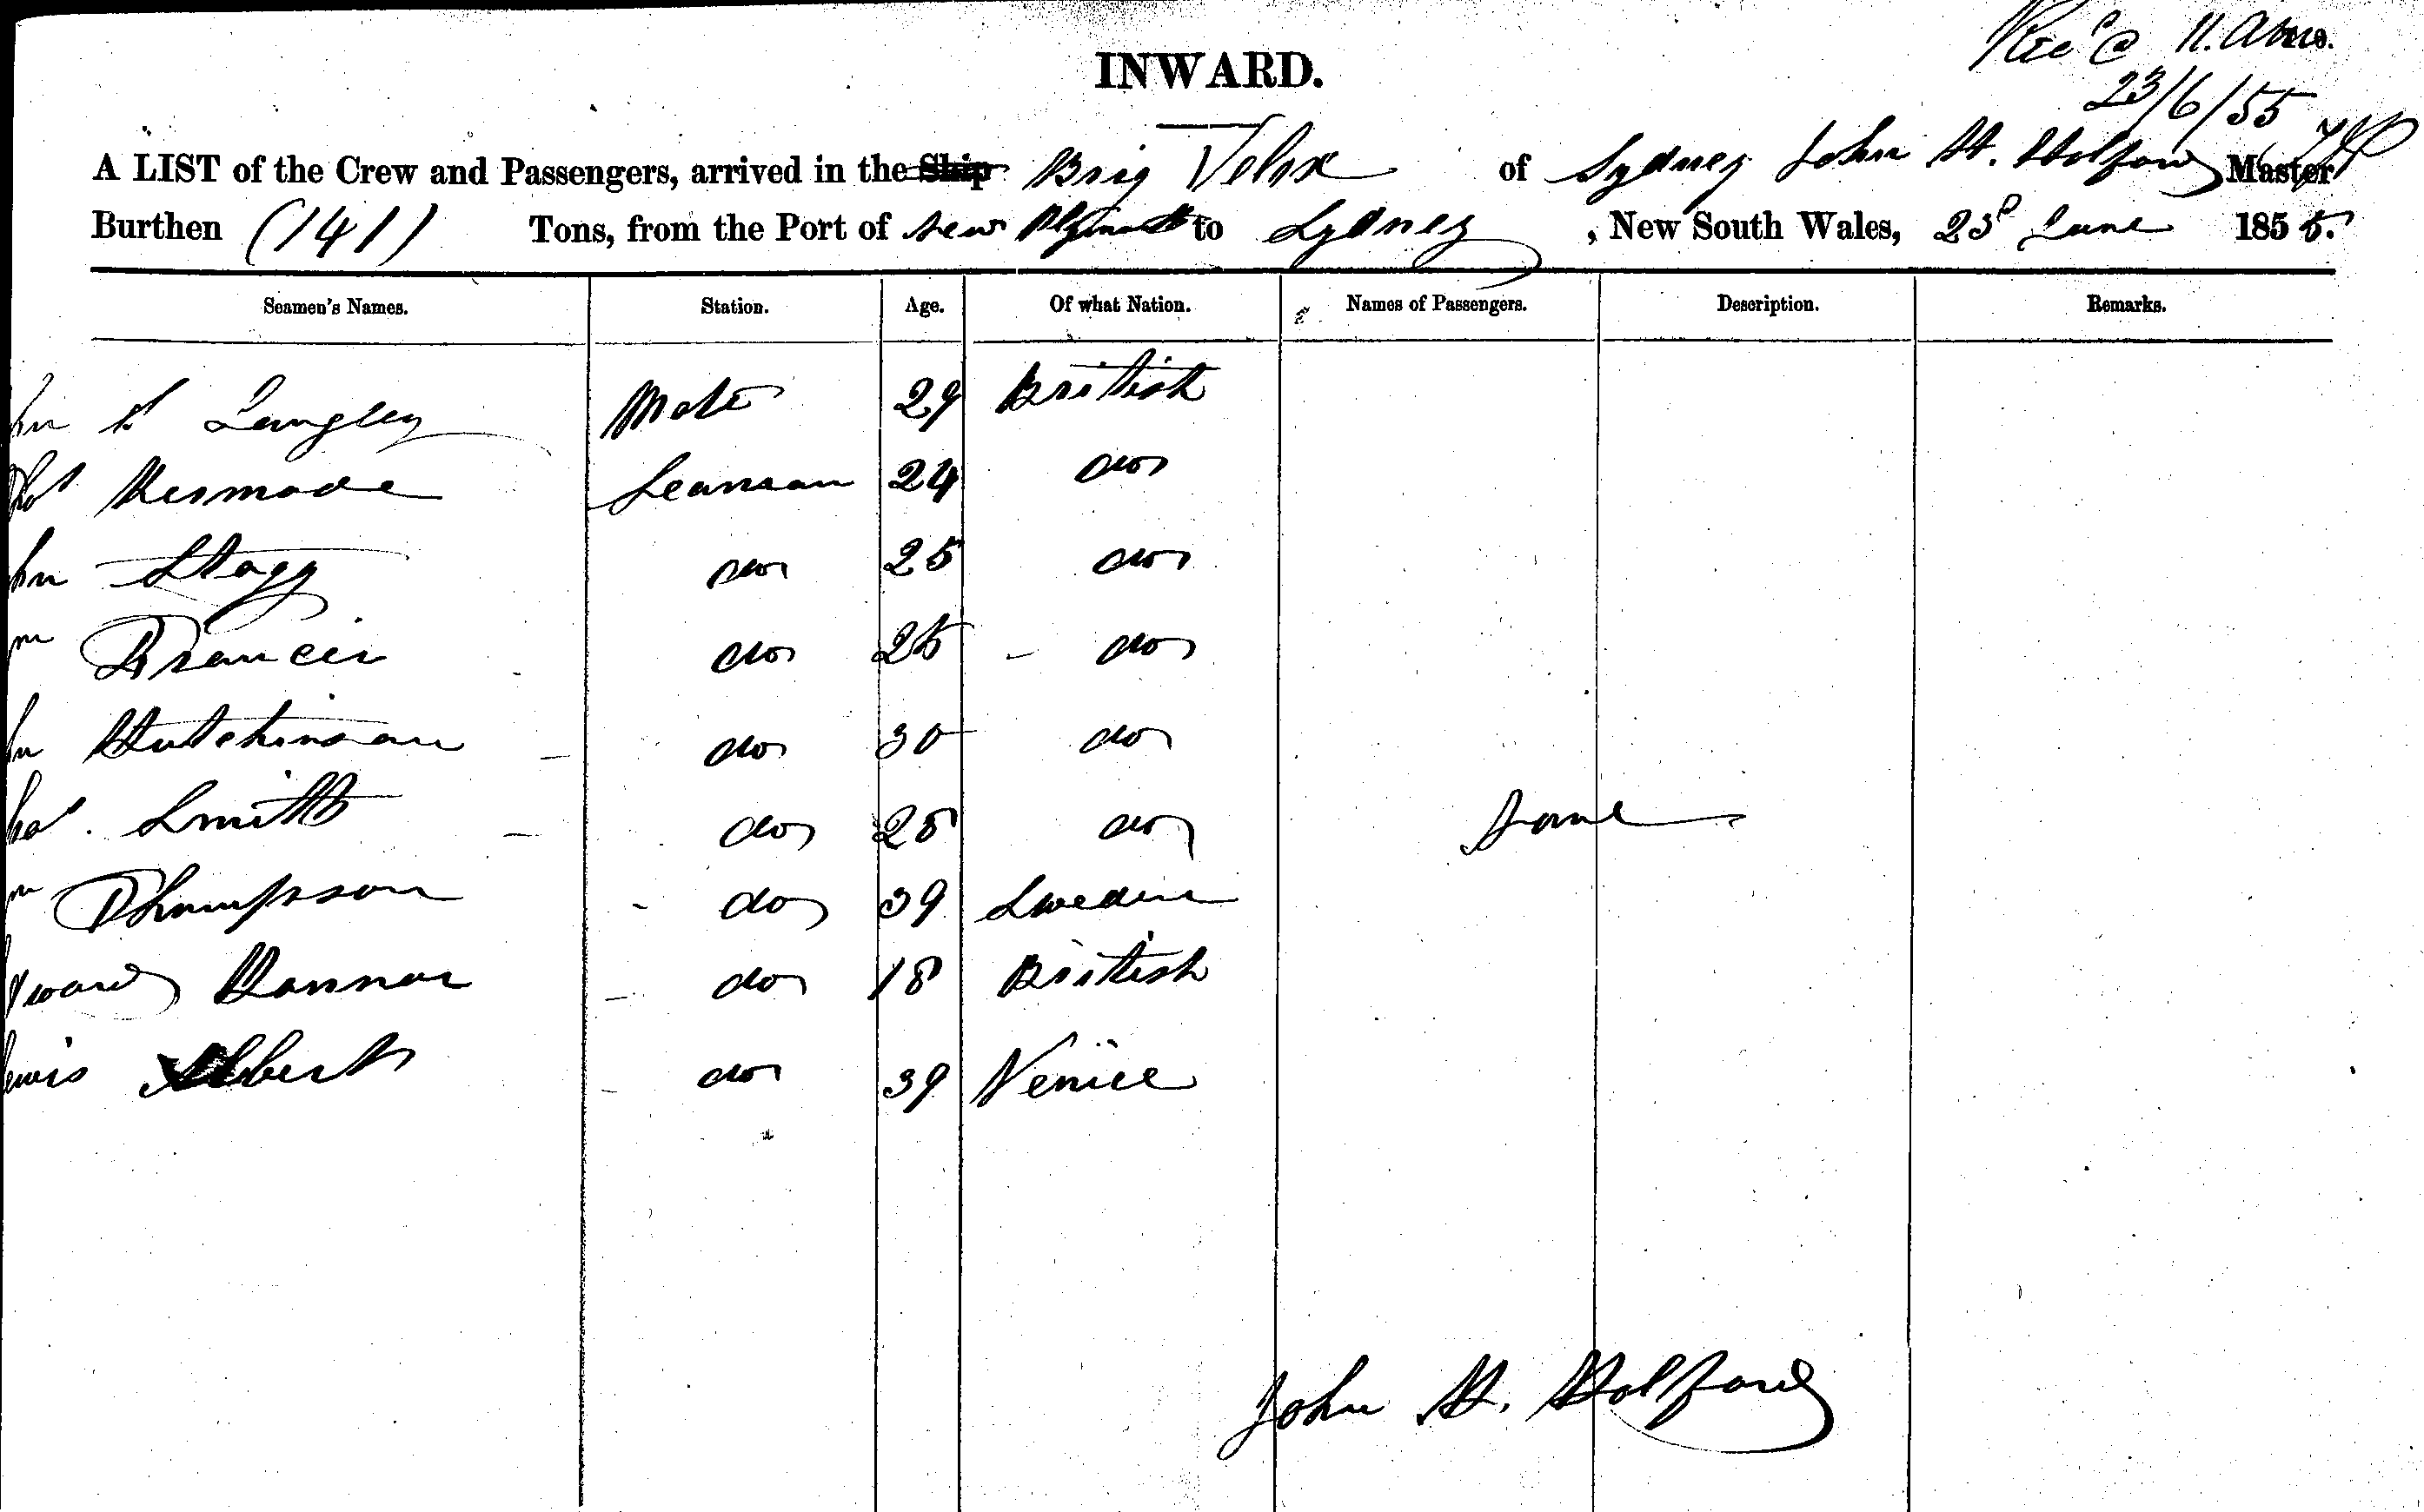 Rec'd @ 11. A.M.
23/6/55
INWARD.
A LIST of the Crew and Passengers, arrived in the Ship Brig Velox of Sydney John H. Holford Master
Burthen (141) Tons, from the Port of New Plymouth to Sydney, New South Wales, 23d June 1855.
Seamen's Names. Station. Age. Of what Nation. Names of Passengers. Description. Remarks.
hn Langley Mate 29 British
Robt Kermode Seaman 24 do
hn Stagg do 25 do
m Francis do 25 do
hn Hutchinson do 30 do
has. Smith do 28 do None
m Thompson do 39 Sweden
dward Connor do 18 British
ewis Albert do 39 Venice
John H. Holford